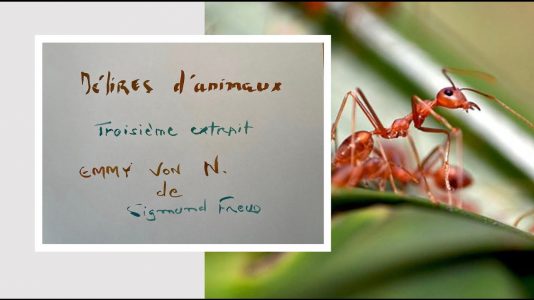 Délires d'animaux
Troisième extrait
EMMY VON N.
de
Sigmund Freud